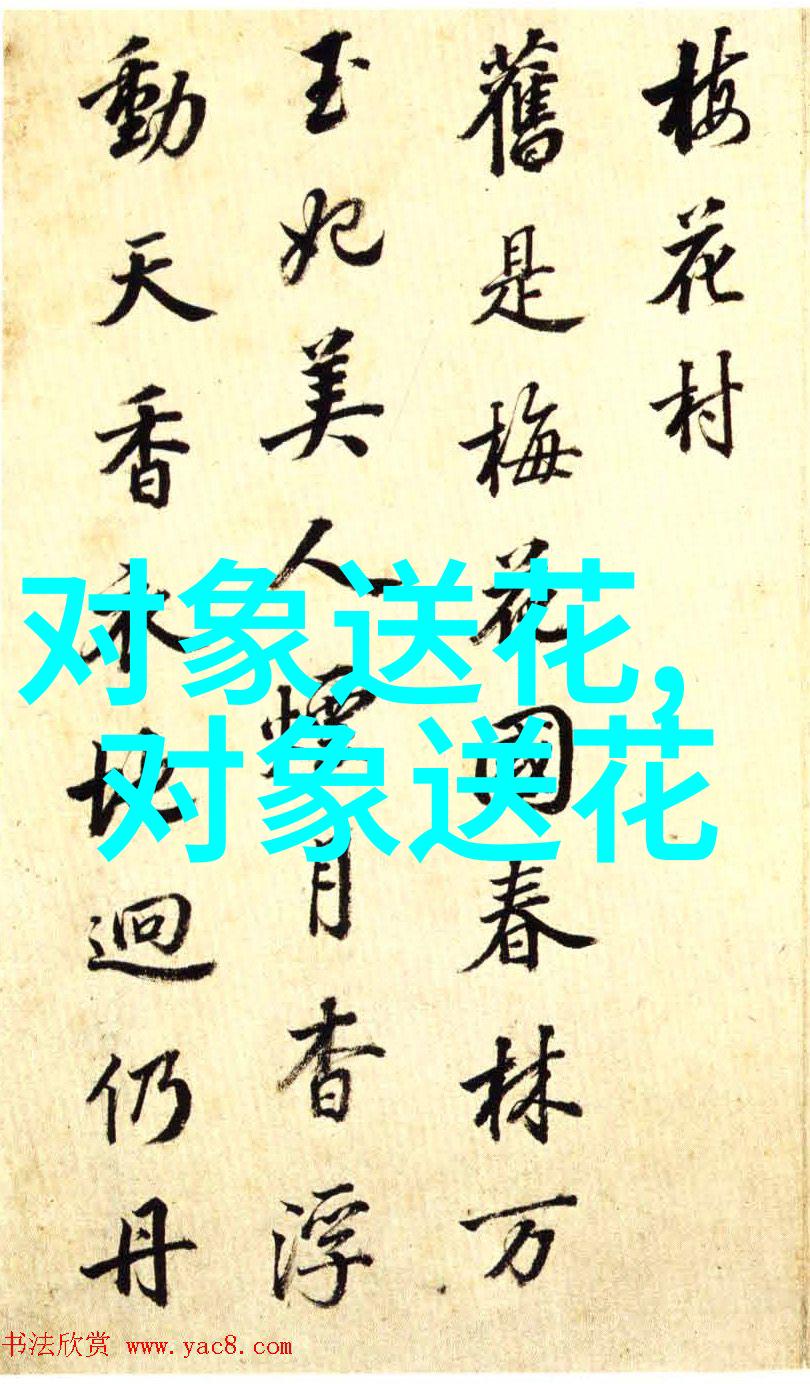 梅花村
舊是梅花國春林万
玉妃美人月杳浮
動天香地迴仍丹
对象送花,
对象送花
书法欣赏 www.yac8.com